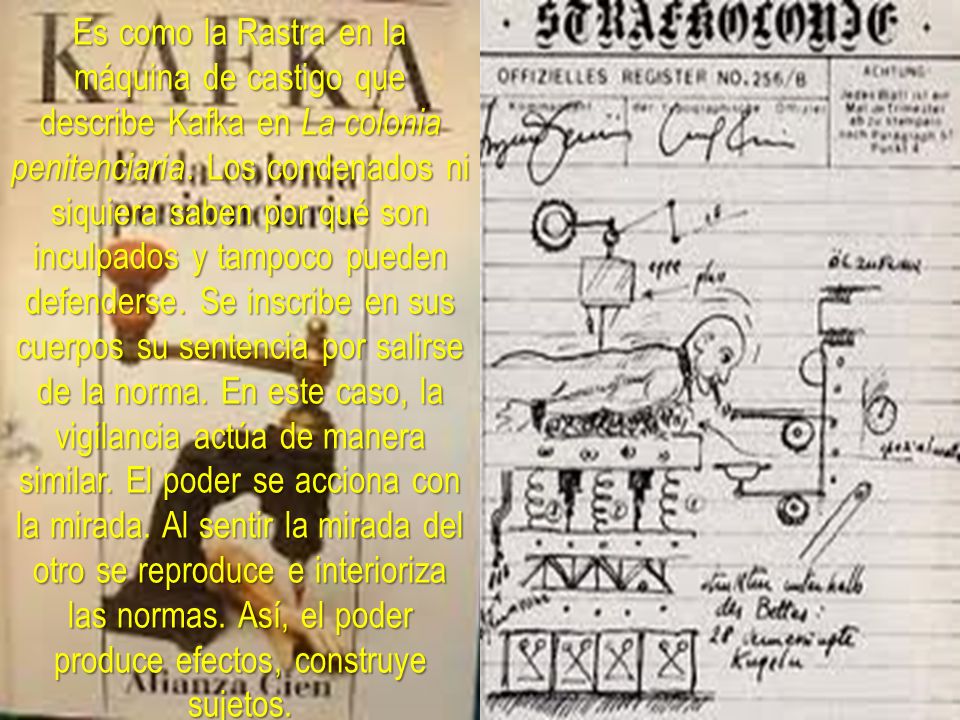 KAFKA
Es como la Rastra en la
máquina de castigo que
describe Kafka en La colonia
penitenciaria. Los condenados ni
siquiera saben por qué son
inculpados y tampoco pueden
defenderse. Se inscribe en sus
cuerpos su sentencia por salirse
de la norma. En este caso, la
vigilancia actúa de manera
similar. El poder se acciona con
la mirada. Al sentir la mirada del
otro se reproduce e interioriza
las normas. Así, el poder
produce efectos, construye
sujetos.
En la colonia
penitenciaria
Alianza Cien
· STRAFKOLONIE ·
OFFIZIELLES REGISTER NO. 256/B
der typographische Offizier
ACHTUNG
Jedes Blatt ist ein
Mal im Trimester
ab zu stempeln
nach Paragraph 57
Punkt 4
des Bettes:
28
Kugeln